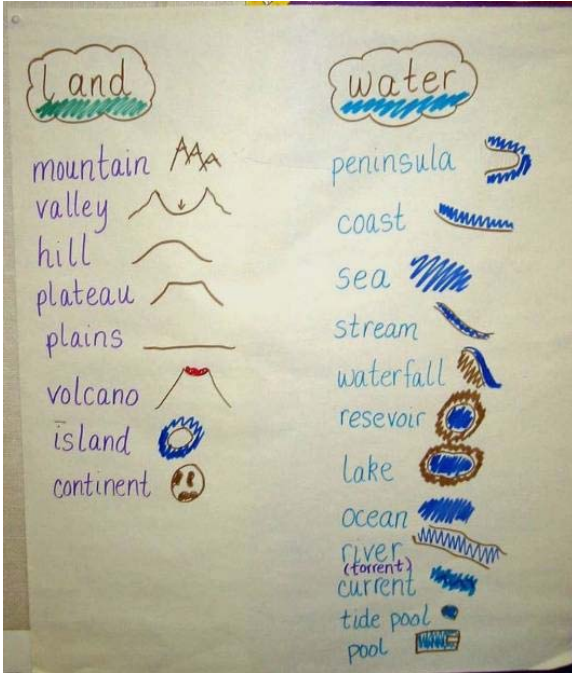 land
mountain
valley
hill
plateau
plains
volcano
island
continent
water
peninsula
coast
sea
stream
waterfall
resevoir
lake
ocean
river
(torrent)
current
tide pool
pool